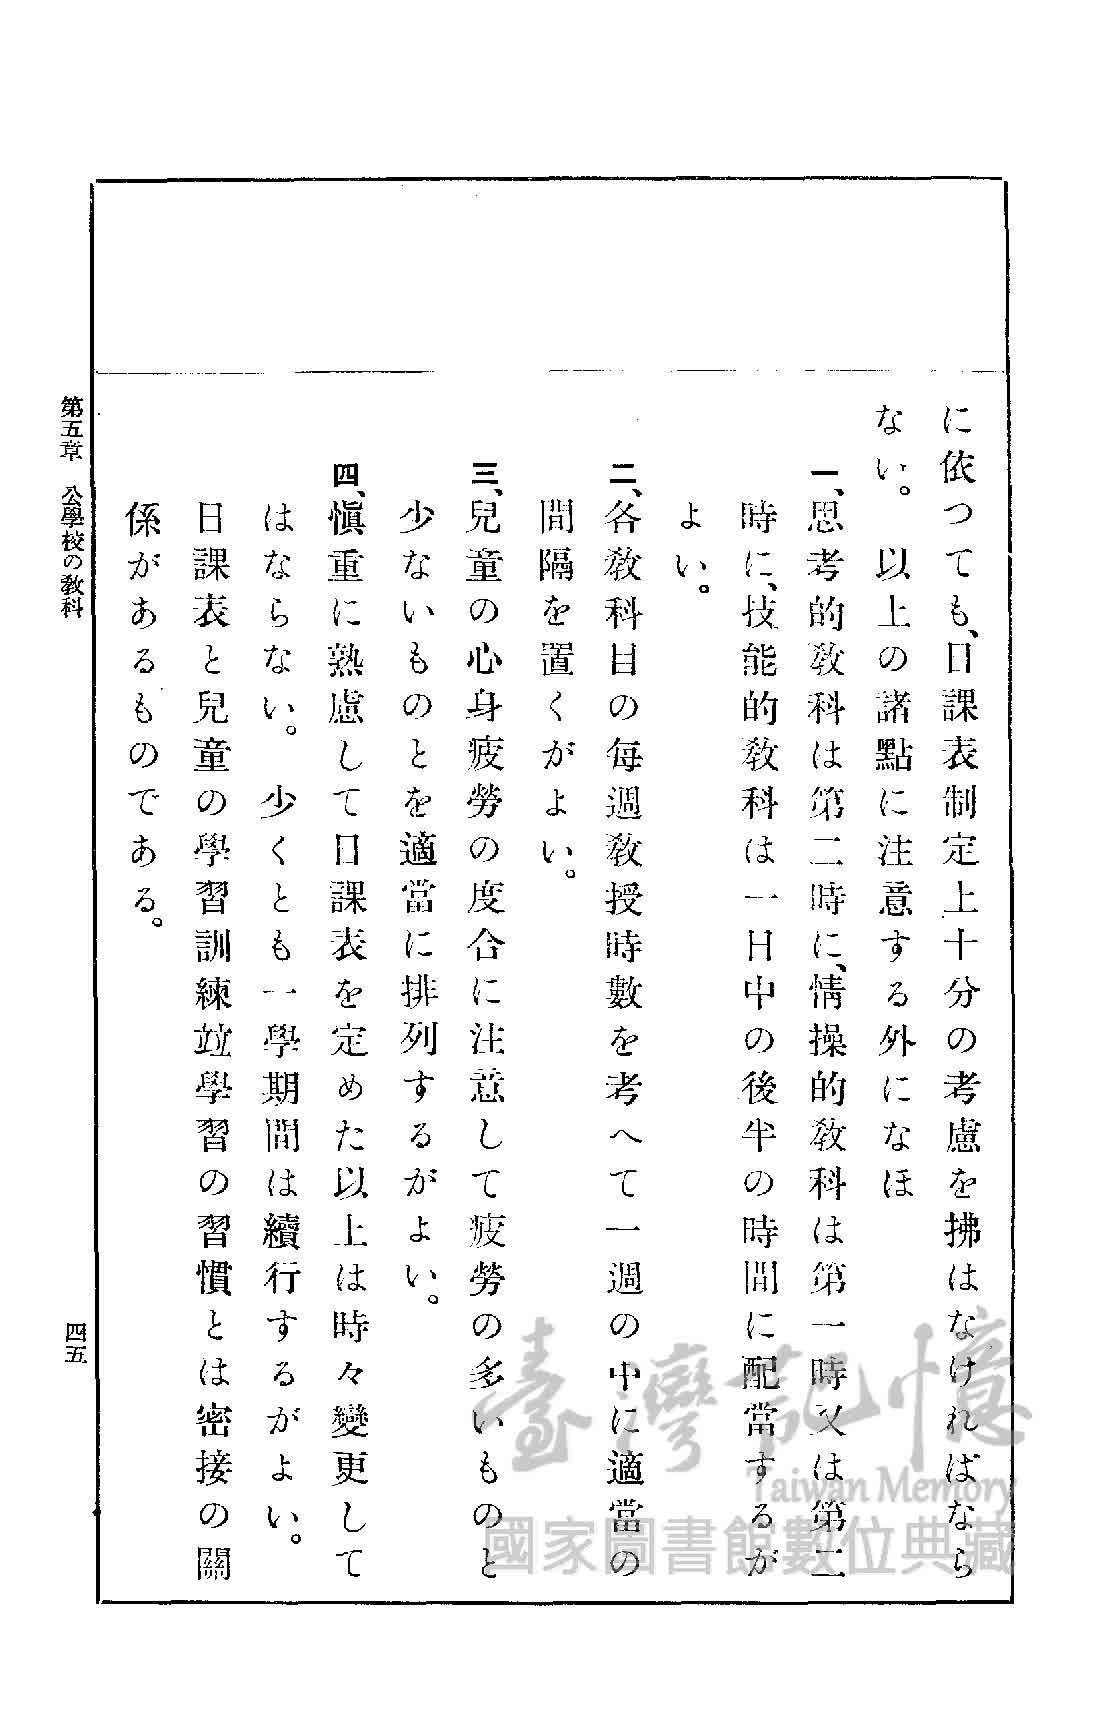 に依つても、日課表制定上十分の考慮を拂はなければなら
ない。以上の諸點に注意する外になほ
一、思考的敎科は第二時に、情操的敎科は第一時又は第二
時に、技能的敎科は一日中の後半の時間に配當するが
よい。
二、各敎科目の每週敎授時數を考へて一週の中に適當の
間隔を置くがよい。
三、兒童の心身疲勞の度合に注意して疲勞の多いものと
少ないものとを適當に排列するがよい。
四、愼重に熟慮して日課表を定めた以上は時々變更して
はならない。少くとも一學期間は續行するがよい。
日課表と兒童の學習訓練竝學習の習慣とは密接の關
係があるものである。
第五章 公學校の敎科
四五
臺灣記憶
Taiwan Memory
國家圖書館數位典藏